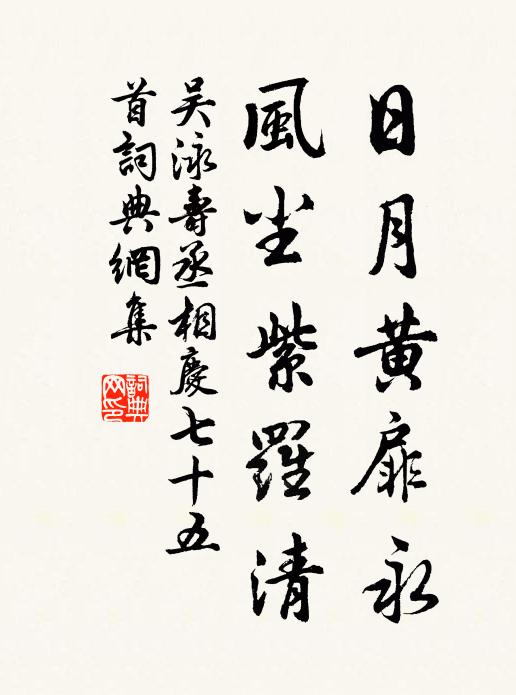 日月黄扉永
風尘紫羅清
吴泳壽丞相慶七十五
首詞典網集
詞典
网印